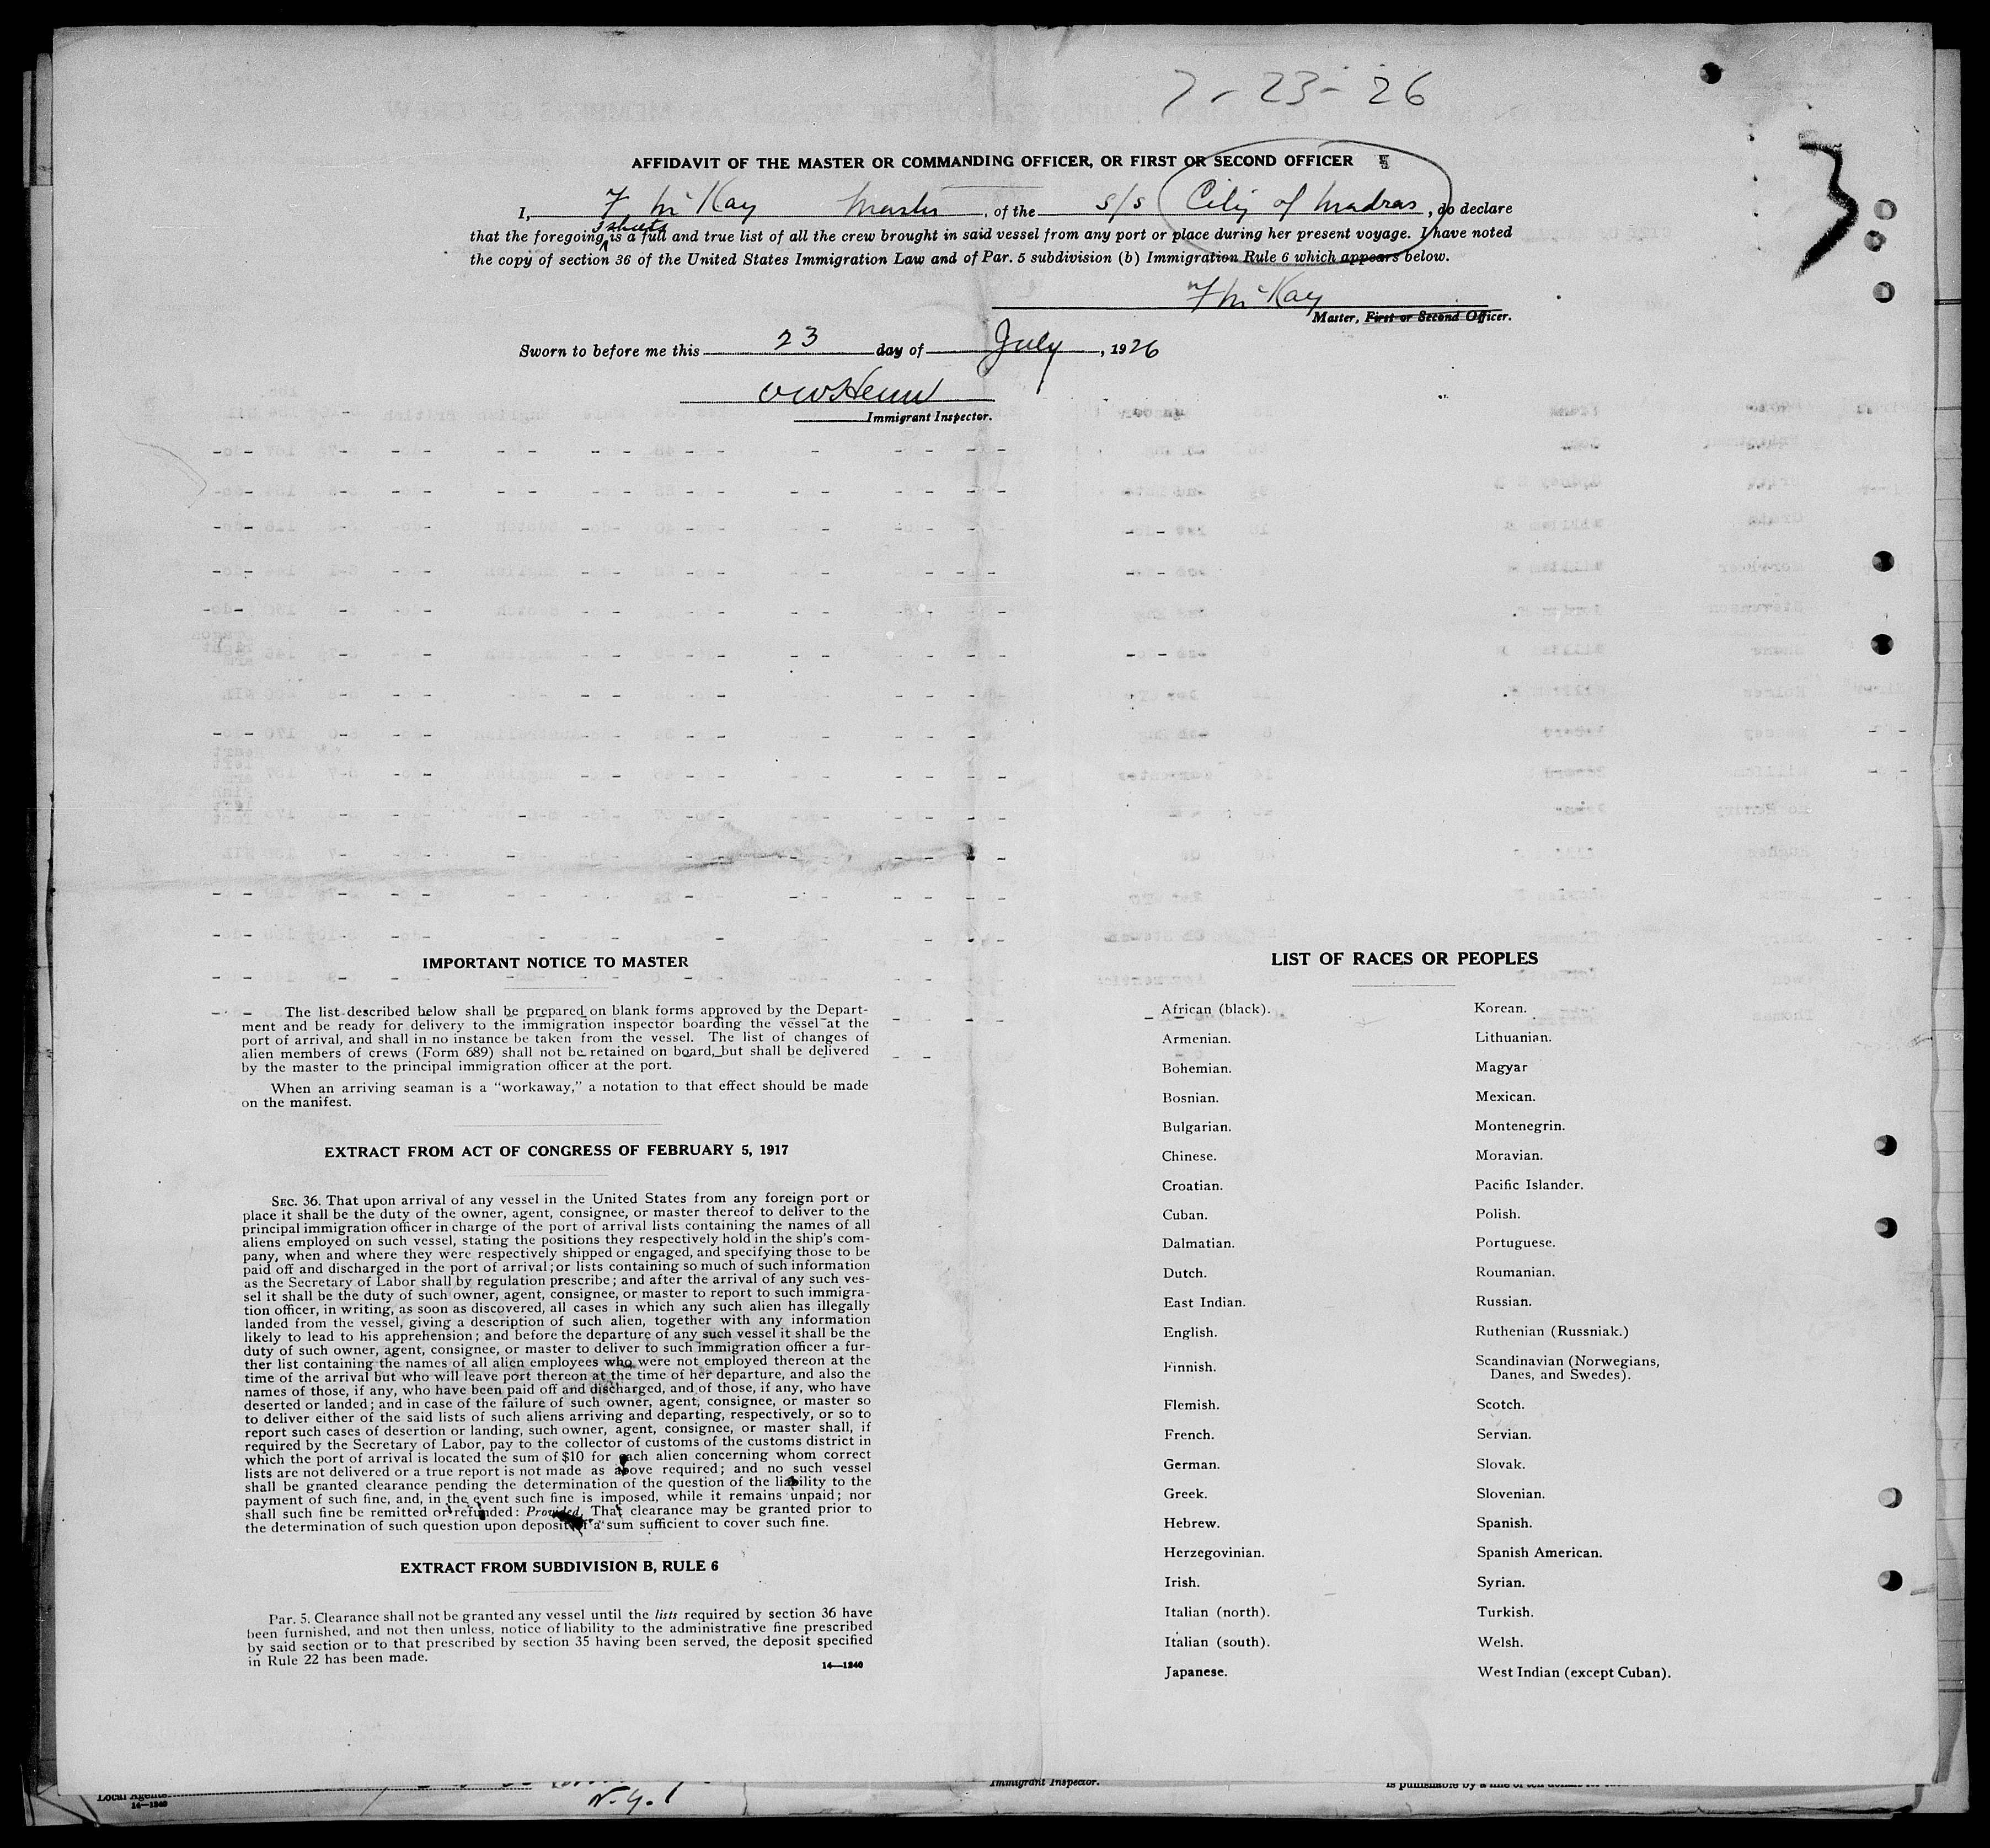 7-23-26
3
AFFIDAVIT OF THE MASTER OR COMMANDING OFFICER, OR FIRST OR SECOND OFFICER
I, F McKay Master, of the s/s City of Madras, do declare
3 sheets
that the foregoing is a full and true list of all the crew brought in said vessel from any port or place during her present voyage. I have noted
the copy of section 36 of the United States Immigration Law and of Par. 5 subdivision (b) Immigration Rule 6 which appears below.
F McKay
Master, First or Second Officer.
Sworn to before me this 23 day of July, 1926
Immigrant Inspector.
IMPORTANT NOTICE TO MASTER
The list described below shall be prepared on blank forms approved by the Depart-
ment and be ready for delivery to the immigration inspector boarding the vessel at the
port of arrival, and shall in no instance be taken from the vessel. The list of changes of
alien members of crews (Form 689) shall not be retained on board, but shall be delivered
by the master to the principal immigration officer at the port.
When an arriving seaman is a “workaway,” a notation to that effect should be made
on the manifest.
EXTRACT FROM ACT OF CONGRESS OF FEBRUARY 5, 1917
SEC. 36. That upon arrival of any vessel in the United States from any foreign port or
place it shall be the duty of the owner, agent, consignee, or master thereof to deliver to the
principal immigration officer in charge of the port of arrival lists containing the names of all
aliens employed on such vessel, stating the positions they respectively hold in the ship's com-
pany, when and where they were respectively shipped or engaged, and specifying those to be
paid off and discharged in the port of arrival; or lists containing so much of such information
as the Secretary of Labor shall by regulation prescribe; and after the arrival of any such ves-
sel it shall be the duty of such owner, agent, consignee, or master to report to such immigra-
tion officer, in writing, as soon as discovered, all cases in which any such alien has illegally
landed from the vessel, giving a description of such alien, together with any information
likely to lead to his apprehension; and before the departure of any such vessel it shall be the
duty of such owner, agent, consignee, or master to deliver to such immigration officer a fur-
ther list containing the names of all alien employees who were not employed thereon at the
time of the arrival but who will leave port thereon at the time of her departure, and also the
names of those, if any, who have been paid off and discharged, and of those, if any, who have
deserted or landed; and in case of the failure of such owner, agent, consignee, or master so
to deliver either of the said lists of such aliens arriving and departing, respectively, or so to
report such cases of desertion or landing, such owner, agent, consignee, or master shall, if
required by the Secretary of Labor, pay to the collector of customs of the customs district in
which the port of arrival is located the sum of $10 for each alien concerning whom correct
lists are not delivered or a true report is not made as above required; and no such vessel
shall be granted clearance pending the determination of the question of the liability to the
payment of such fine, and, in the event such fine is imposed, while it remains unpaid; nor
shall such fine be remitted or refunded: Provided, That clearance may be granted prior to
the determination of such question upon deposit of a sum sufficient to cover such fine.
EXTRACT FROM SUBDIVISION B, RULE 6
Par. 5. Clearance shall not be granted any vessel until the lists required by section 36 have
been furnished, and not then unless, notice of liability to the administrative fine prescribed
by said section or to that prescribed by section 35 having been served, the deposit specified
in Rule 22 has been made.
14—1240
LIST OF RACES OR PEOPLES
African (black).
Armenian.
Bohemian.
Bosnian.
Bulgarian.
Chinese.
Croatian.
Cuban.
Dalmatian.
Dutch.
East Indian.
English.
Finnish.
Flemish.
French.
German.
Greek.
Hebrew.
Herzegovinian.
Irish.
Italian (north).
Italian (south).
Japanese.
Korean.
Lithuanian.
Magyar
Mexican.
Montenegrin.
Moravian.
Pacific Islander.
Polish.
Portuguese.
Roumanian.
Russian.
Ruthenian (Russniak.)
Scandinavian (Norwegians,
Danes, and Swedes).
Scotch.
Servian.
Slovak.
Slovenian.
Spanish.
Spanish American.
Syrian.
Turkish.
Welsh.
West Indian (except Cuban).
Local Agents
14—1240
N.Y.
Immigrant Inspector.